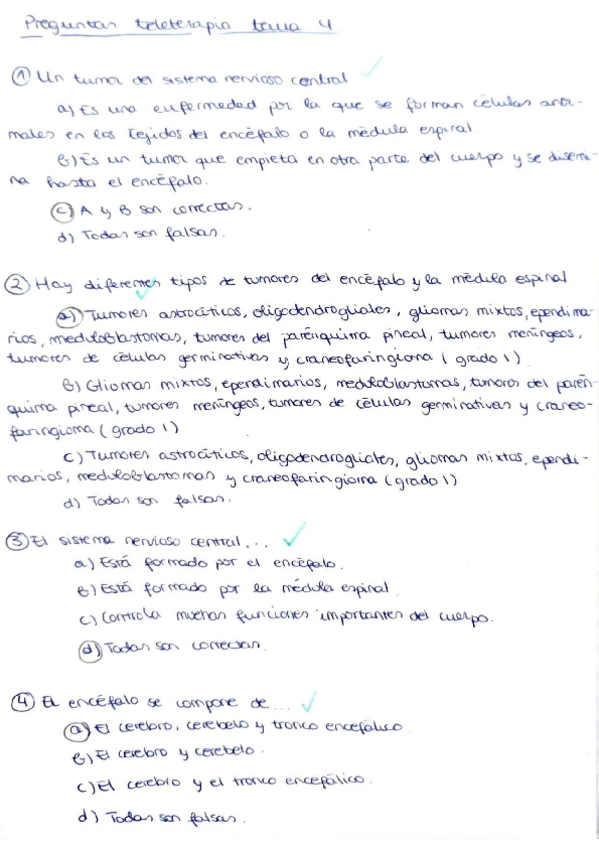 Preguntas teleterapia tema 4
① Un tumor del sistema nervioso central
a) Es una enfermedad por la que se forman células anor-
males en los tejidos del encéfalo o la médula espiral.
b) Es un tumor que empieza en otra parte del cuerpo y se disemi-
na hasta el encéfalo.
c) A y B son correctas.
d) Todas son falsas.
② Hay diferentes tipos de tumores del encéfalo y la médula espinal
a) Tumores astrocíticos, oligodendrogliales, gliomas mixtos, ependima-
rios, meduloblastomas, tumores del parénquima pineal, tumores meníngeos,
tumores de células germinativas y craneofaringioma (grado 1)
b) Gliomas mixtos, ependimarios, meduloblastomas, tumores del parén-
quima pineal, tumores meníngeos, tumores de células germinativas y craneo-
faringioma (grado 1)
c) Tumores astrocíticos, oligodendrogliales, gliomas mixtos, ependi-
marios, meduloblastomas y craneofaringioma (grado 1)
d) Todas son falsas.
③ El sistema nervioso central...
a) Está formado por el encéfalo.
b) Está formado por la médula espinal.
c) Controla muchas funciones importantes del cuerpo.
d) Todas son correctas.
④ El encéfalo se compone de...
a) El cerebro, cerebelo y tronco encefálico.
b) El cerebro y cerebelo.
c) El cerebro y el tronco encefálico.
d) Todas son falsas.